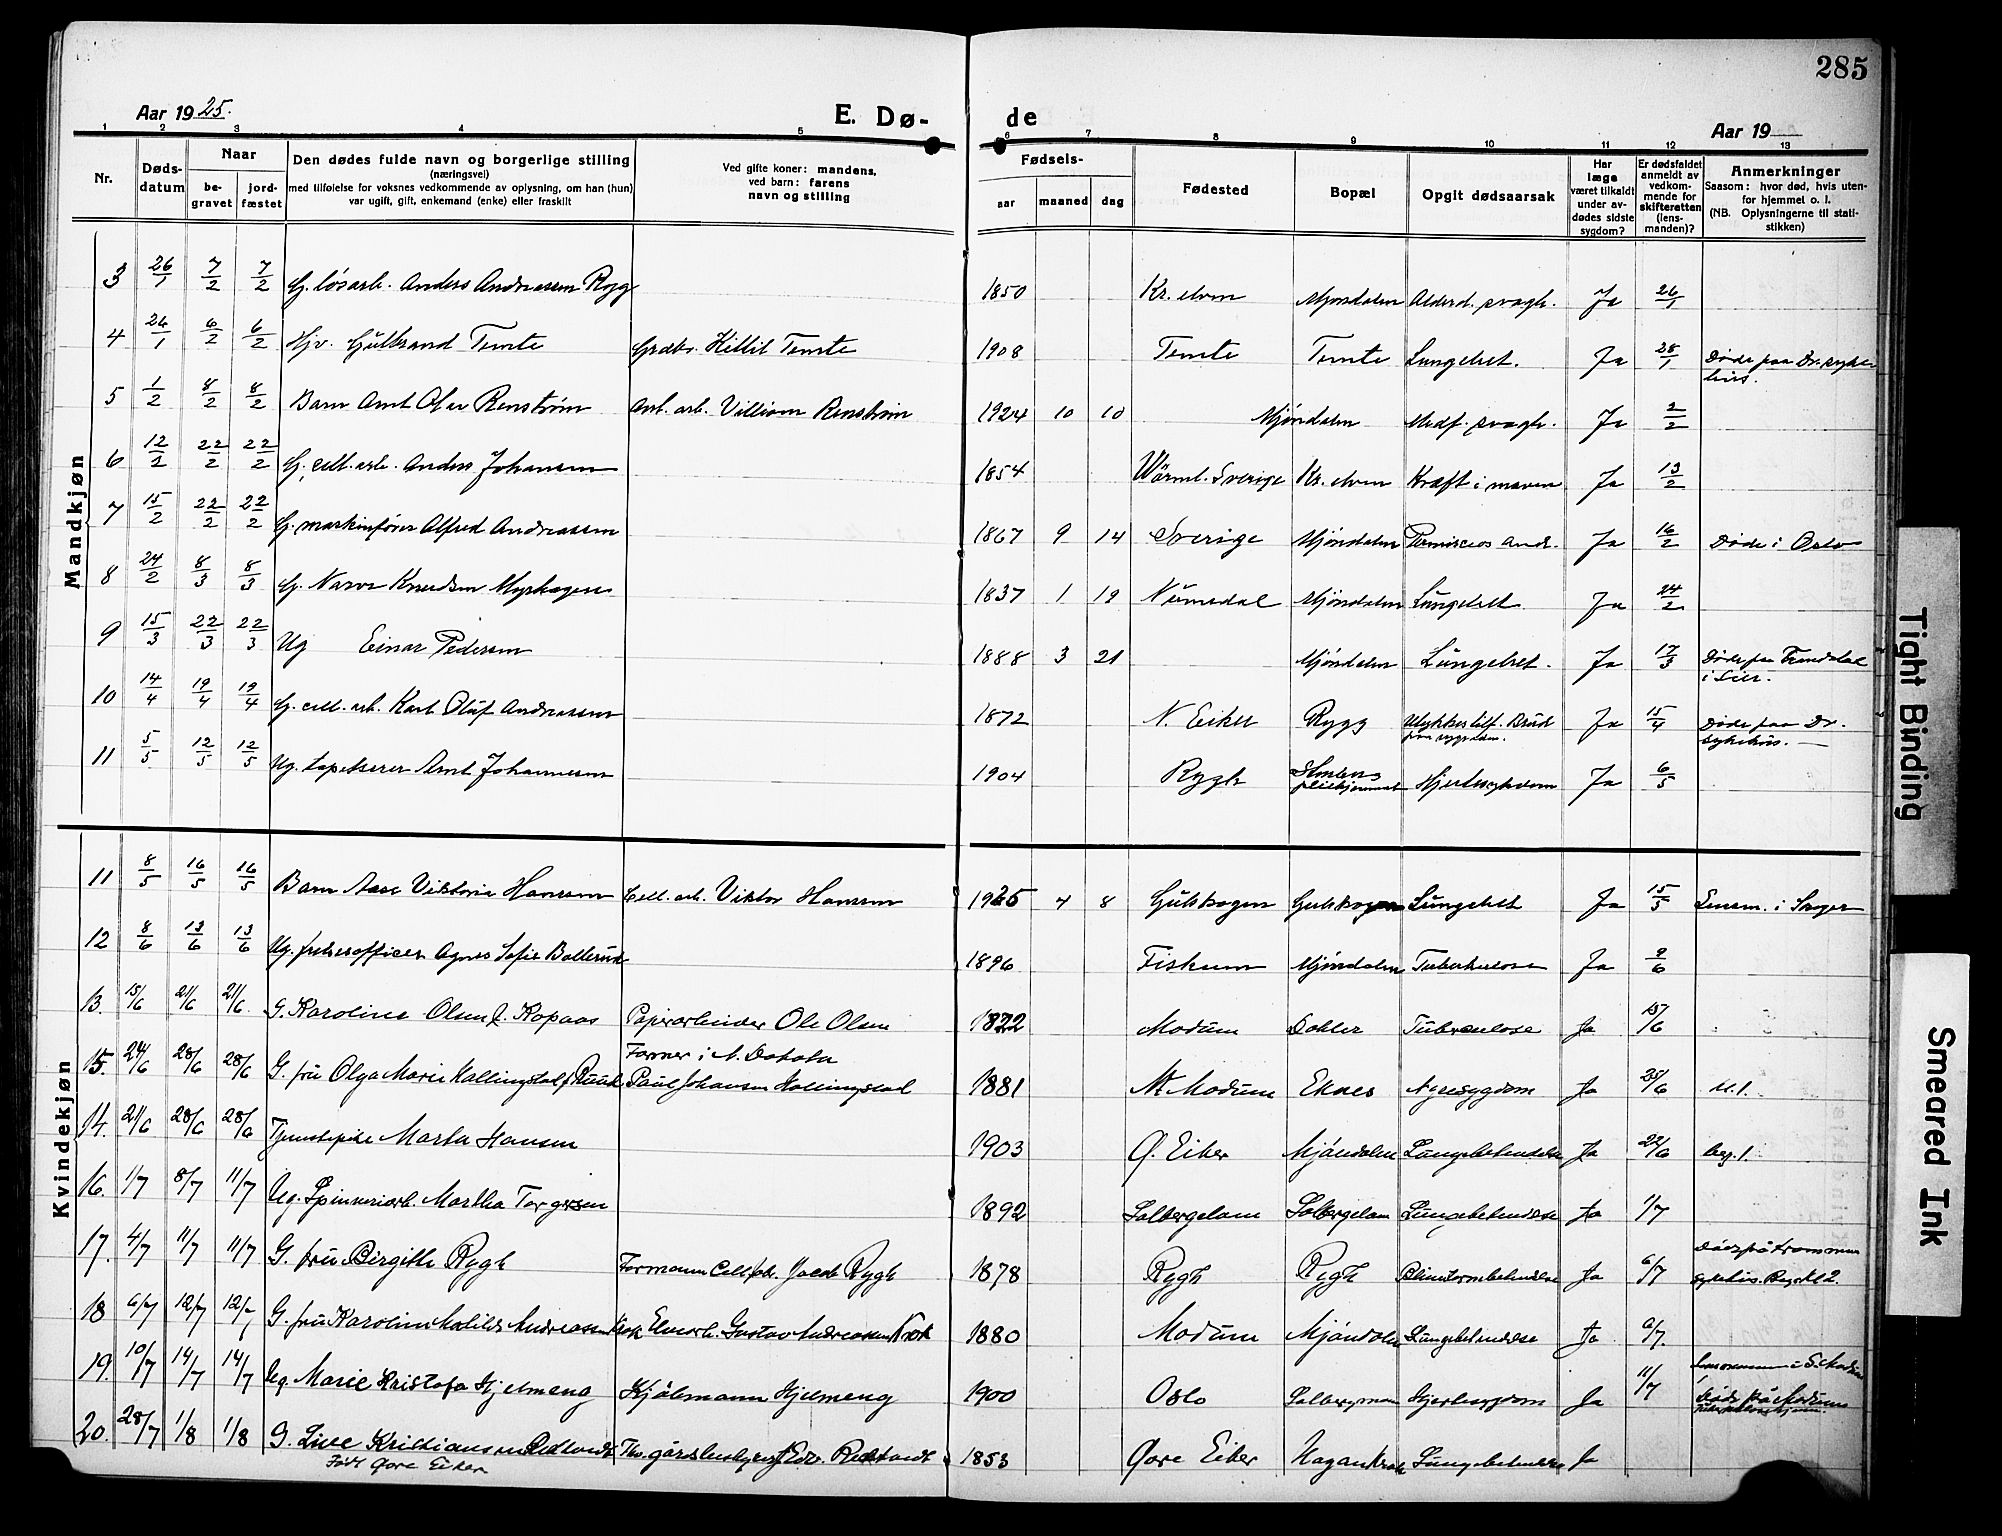 285
Aar 1925.
E. Dø-
de
Aar 19
1 2 3 4 5 6 7 8 9 10 11 12 13
Nr.
Døds-
datum
Naar
be-
gravet
jord-
fæstet
Den dødes fulde navn og borgerlige stilling
(næringsvei)
med tilføielse for voksnes vedkommende av oplysning, om han (hun)
var ugift, gift, enkemand (enke) eller fraskilt
Ved gifte koner: mandens,
ved barn: farens
navn og stilling
Fødsels-
aar
maaned
dag
Fødested
Bopæl
Opgit dødsaarsak
Har
læge
været tilkaldt
under av-
dødes sidste
sygdom?
Er dødsfaldet
anmeldt av
vedkom-
mende for
skifteretten
(lens-
manden)?
Anmerkninger
Saasom: hvor død, hvis uten-
for hjemmet o. l.
(NB. Oplysningerne til stati-
stikken)
Mandkjøn
3 26/1 7/2 7/2 G. løsarb. Anders Andreassen Rygg 1850 Kr. elven Mjøndalen Alderd. svagh. Ja 26/1
4 26/1 6/2 6/2 Gulbrand Temte Kittil Temte 1908 Temte Temte Lungebet. Ja 28/1 Døde paa Dr. syke-
hus.
5 1/2 8/2 8/2 Barn Arnt Olav Renstrøm arb. Villiam Renstrøm 1924 10 10 Mjøndalen Medf. svagh. Ja 2/2
6 12/2 22/2 22/2 G. cell. arb. Anders Johansen 1854 Värml. Sverige Kr. elven Kræft i maven Ja 13/2
7 15/2 22/2 22/2 G. maskinfører Alfred Andreassen 1867 9 14 Sverige Mjøndalen Ja 16/2 Døde i Oslo
8 24/2 8/3 8/3 G. Narve Knudsen Myrhagen 1837 1 19 Numedal Mjøndalen Lungebet. Ja 24/2
9 15/3 22/3 22/3 Ug Einar Pedersen 1888 3 21 Mjøndalen Lungebet. Ja 17/3 Døde paa
i Lier.
10 14/4 19/4 19/4 G. cell. arb. Karl Oluf Andreassen 1872 N. Eiker Rygg Ulykkestilf. Brud
Ja 15/4 Døde paa Dr.
sykehus.
11 5/5 12/5 12/5 Ug. tapetserer Arnt Johannessen 1904 Rygh
pleiehjemmet Hjertesykdom Ja 6/5
Kvindekjøn
11 8/5 16/5 16/5 Barn Aase Viktoria Hansen Cell. arb. Viktor Hansen 1925 4 8 Gulskogen Gulskogen Lungebet. Ja 15/5 Lensm. i Skoger
12 8/6 13/6 13/6 Ug. frelsesofficer Agnes Sofie Bollerud 1896 Fiskum Mjøndalen Tuberkulose Ja 9/6
13. 15/6 21/6 21/6 G. Karoline Olsen f. Kopaas Papirarbeider Ole Olsen 1822 Modum Dokker Tuberculose Ja 15/6
15. 24/6 28/6 28/6 G. fru Olga Marie Hallingstad f. Ruud Farmer i N. Dakota
Paul Johansen Hallingstad 1881 Modum Eknes Nyresygdom Ja 25/6
14. 21/6 28/6 28/6 Tjenestepike Marta Hansen 1903 Ø. Eiker Mjøndalen Lungebetendelse Ja 22/6
16. 1/7 8/7 11/7 Ug. Spinneriarb. Martha Torgersen 1892 Solbergelven Solbergelven Lungebetendelse Ja 1/7
17. 4/7 11/7 11/7 G. fru Birgitte Rygh Formann Cell.fab. Jacob Rygh 1878 Rygh Rygh Blindtarmbetendelse Ja 6/7 Død på Drammen
sykehus.
18 6/7 12/7 12/7 G. fru Karoline Matilde Andreassen Krok Elvearb. Gustav Andreassen Krok 1880 Modum Mjøndalen Lungebetendelse Ja 6/7.
19. 10/7 14/7 14/7 Ug. Marie Kristofa Hjelmeng Kjøbmann Hjelmeng 1900 Oslo Solbergmoen Hjertesygdom Ja 11/7 Døde på Modum
20. 28/7 1/8 1/8 G. Lise Kristiansen Redtvedt
født Øvre Eiker 1853 Øvre Eiker Lungebetendelse Ja
Tight Binding
Smeared Ink